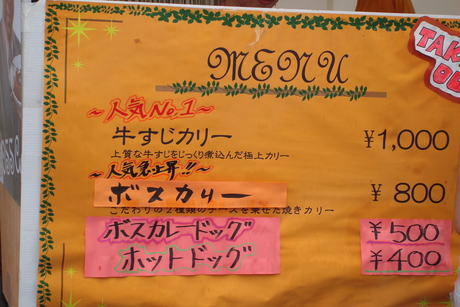 MENU
TAKE
OU
～人気No.1～
牛すじカリー ¥1,000
上質な牛すじをじっくり煮込んだ極上カリー
～人気急上昇!!～
ボスカリー ¥800
こだわりの2種類のチーズを乗せた焼きカリー
ボスカレードッグ ¥500
ホットドッグ ¥400